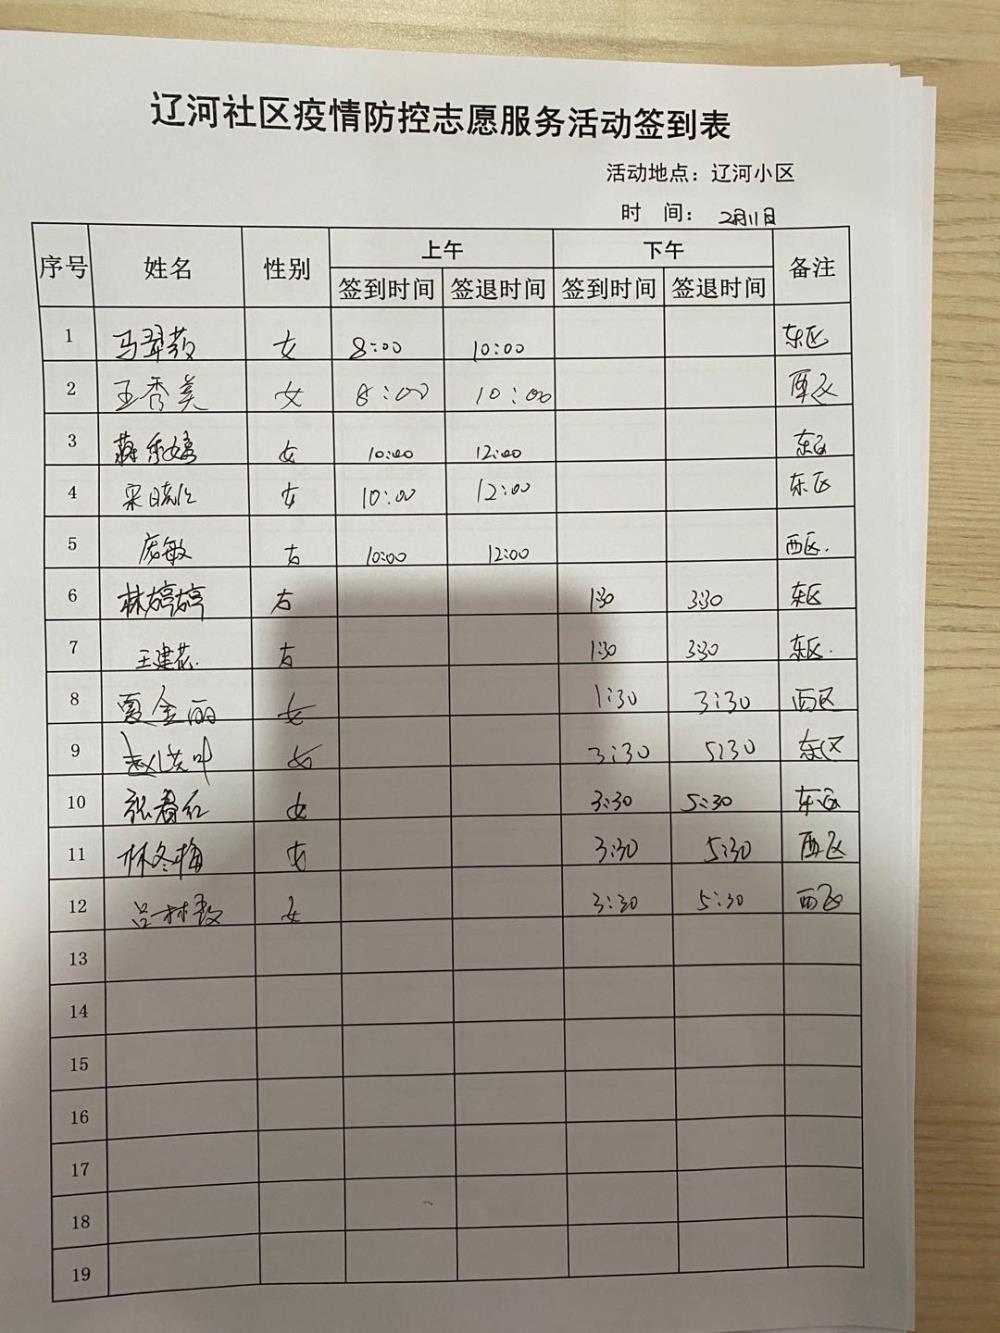 辽河社区疫情防控志愿服务活动签到表
活动地点：辽河小区
时 间：2月11日
序号 姓名 性别 上午 下午 备注
签到时间 签退时间 签到时间 签退时间
1 马翠 女 8:00 10:00 东区
2 王秀美 女 8:00 10:00 西区
3 女 10:00 12:00 东区
4 宋 女 10:00 12:00 东区
5 庞敏 女 10:00 12:00 西区.
6 林婷婷 女 1:30 3:30 东区
7 王建花. 女 1:30 3:30 东区.
8 夏金丽 女 1:30 3:30 西区
9 赵 叶 女 3:30 5:30 东区
10 张春红 女 3:30 5:30 东区
11 林冬梅 女 3:30 5:30 西区
12 吕林 女 3:30 5:30 西区
13
14
15
16
17
18
19